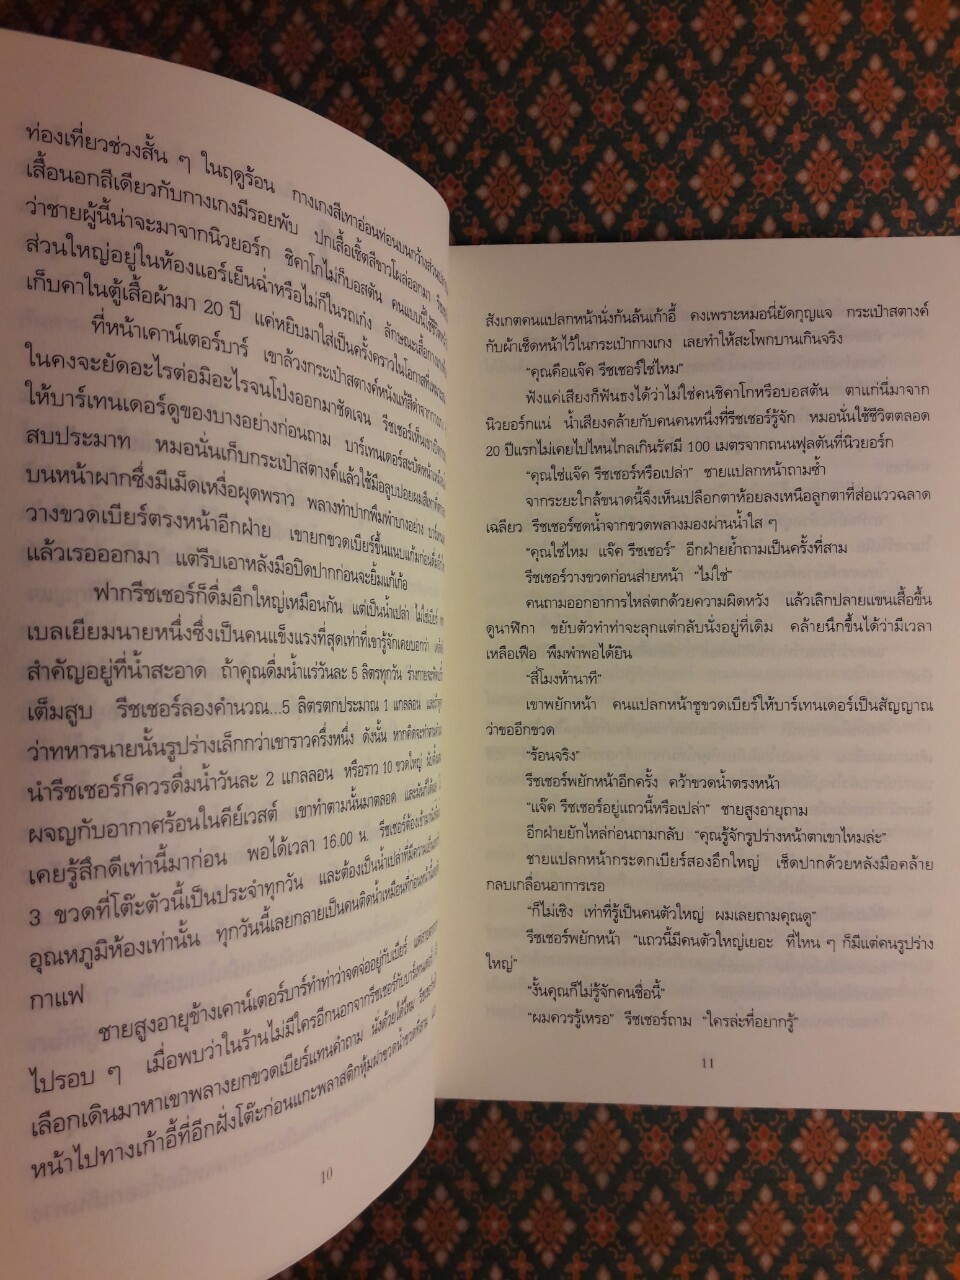 ท่องเที่ยวช่วงสั้น ๆ ในฤดูร้อน กางเกงสีเทาอ่อนท่อนบนกว้าง
เสื้อนอกสีเดียวกับกางเกงมีรอยพับ ปกเสื้อเชิ้ตสีขาวโผล่ออกมา
ว่าชายผู้นี้น่าจะมาจากนิวยอร์ก ชิคาโกไม่ก็บอสตัน คนแบบนี้ใช้ชีวิต
ส่วนใหญ่อยู่ในห้องแอร์เย็นฉ่ำหรือไม่ก็ในรถเก๋ง ลักษณะเสื้อกางเกง
เก็บคาในตู้เสื้อผ้ามา 20 ปี แค่หยิบมาใส่เป็นครั้งคราวในโอกาส
ที่หน้าเคาน์เตอร์บาร์ เขาล้วงกระเป๋าสตางค์หนังแท้สีดำจาก
ในคงจะยัดอะไรต่อมิอะไรจนโป่งออกมาชัดเจน รีชเชอร์เห็นเขา
ให้บาร์เทนเดอร์ดูของบางอย่างก่อนถาม บาร์เทนเดอร์สะบัดหน้า
สบประมาท หมอนั่นเก็บกระเป๋าสตางค์แล้วใช้มือลูบปอยผม
บนหน้าผากซึ่งมีเม็ดเหงื่อผุดพราว พลางทำปากพึมพำบางอย่าง
วางขวดเบียร์ตรงหน้าอีกฝ่าย เขายกขวดเบียร์ขึ้นแนบแก้มก่อน
แล้วเรอออกมา แต่รีบเอาหลังมือปิดปากก่อนจะยิ้มแก้เก้อ
ฟากรีชเชอร์ก็ดื่มอึกใหญ่เหมือนกัน แต่เป็นน้ำเปล่า ไม่ใช่เบียร์
เบลเยียมนายหนึ่งซึ่งเป็นคนแข็งแรงที่สุดเท่าที่เขารู้จักเคยบอกว่า
สำคัญอยู่ที่น้ำสะอาด ถ้าคุณดื่มน้ำแร่วันละ 5 ลิตรทุกวัน
เต็มสูบ รีชเชอร์ลองคำนวณ...5 ลิตรตกประมาณ 1 แกลลอน
ว่าทหารนายนั้นรูปร่างเล็กกว่าเขาราวครึ่งหนึ่ง ดังนั้น
นำรีชเชอร์ก็ควรดื่มน้ำวันละ 2 แกลลอน หรือราว 10 ขวดใหญ่
ผจญกับอากาศร้อนในคีย์เวสต์ เขาทำตามนั้นมาตลอด
เคยรู้สึกดีเท่านี้มาก่อน พอได้เวลา 16.00 น.
3 ขวดที่โต๊ะตัวนี้เป็นประจำทุกวัน และต้องเป็นน้ำเปล่า
อุณหภูมิห้องเท่านั้น ทุกวันนี้เลยกลายเป็นคนติดน้ำเหมือนที่ก่อนหน้านี้
กาแฟ
ชายสูงอายุข้างเคาน์เตอร์บาร์ทำท่าว่าจดจ่ออยู่กับเบียร์
ไปรอบ ๆ เมื่อพบว่าในร้านไม่มีใครอีกนอกจากรีชเชอร์กับบาร์เทนเดอร์
เลือกเดินมาหาเขาพลางยกขวดเบียร์แทนคำถาม
หน้าไปทางเก้าอี้ที่อีกฝั่งโต๊ะก่อนแกะพลาสติกหุ้มฝาขวดน้ำ
10
สังเกตคนแปลกหน้านั่งก้นล้นเก้าอี้ คงเพราะหมอนี่ยัดกุญแจ กระเป๋าสตางค์
กับผ้าเช็ดหน้าไว้ในกระเป๋ากางเกง เลยทำให้สะโพกบานเกินจริง
“คุณคือแจ๊ค รีชเชอร์ใช่ไหม”
ฟังแค่เสียงก็ฟันธงได้ว่าไม่ใช่คนชิคาโกหรือบอสตัน ตาแก่นี่มาจาก
นิวยอร์กแน่ น้ำเสียงคล้ายกับคนคนหนึ่งที่รีชเชอร์รู้จัก หมอนั่นใช้ชีวิตตลอด
20 ปีแรกไม่เคยไปไหนไกลเกินรัศมี 100 เมตรจากถนนฟุลตันที่นิวยอร์ก
“คุณใช่แจ๊ค รีชเชอร์หรือเปล่า” ชายแปลกหน้าถามซ้ำ
จากระยะใกล้ขนาดนี้จึงเห็นเปลือกตาห้อยลงเหนือลูกตาที่ส่อแววฉลาด
เฉลียว รีชเชอร์ซดน้ำจากขวดพลางมองผ่านน้ำใส ๆ
“คุณใช่ไหม แจ๊ค รีชเชอร์” อีกฝ่ายย้ำถามเป็นครั้งที่สาม
รีชเชอร์วางขวดก่อนส่ายหน้า “ไม่ใช่”
คนถามออกอาการไหล่ตกด้วยความผิดหวัง แล้วเลิกปลายแขนเสื้อขึ้น
ดูนาฬิกา ขยับตัวทำท่าจะลุกแต่กลับนั่งอยู่ที่เดิม คล้ายนึกขึ้นได้ว่ามีเวลา
เหลือเฟือ พึมพำพอได้ยิน
“สี่โมงห้านาที”
เขาพยักหน้า คนแปลกหน้าชูขวดเบียร์ให้บาร์เทนเดอร์เป็นสัญญาณ
ว่าขออีกขวด
“ร้อนจริง”
รีชเชอร์พยักหน้าอีกครั้ง คว้าขวดน้ำตรงหน้า
“แจ๊ค รีชเชอร์อยู่แถวนี้หรือเปล่า” ชายสูงอายุถาม
อีกฝ่ายยักไหล่ก่อนถามกลับ “คุณรู้จักรูปร่างหน้าตาเขาไหมล่ะ”
ชายแปลกหน้ากระดกเบียร์สองอึกใหญ่ เช็ดปากด้วยหลังมือคล้าย
กลบเกลื่อนอาการเรอ
“ก็ไม่เชิง เท่าที่รู้เป็นคนตัวใหญ่ ผมเลยถามคุณดู”
รีชเชอร์พยักหน้า “แถวนี้มีคนตัวใหญ่เยอะ ที่ไหน ๆ ก็มีแต่คนรูปร่าง
ใหญ่”
“งั้นคุณก็ไม่รู้จักคนชื่อนี้”
“ผมควรรู้เหรอ” รีชเชอร์ถาม “ใครล่ะที่อยากรู้”
11